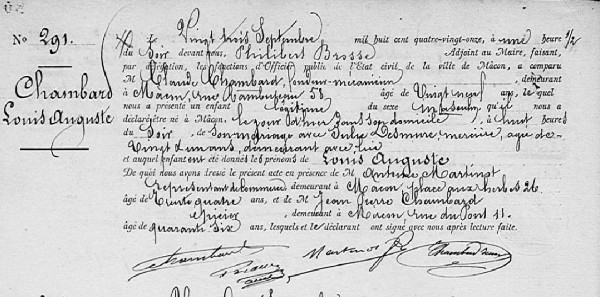 No 291.
Chambard
Louis Auguste
Le Vingt trois Septembre, mil huit cent quatre-vingt-onze, à une heure 1/2
du Soir devant nous, Philibert Brosse Adjoint au Maire, faisant,
par délégation, les fonctions d'Officier public de l'Etat civil de la ville de Mâcon, a comparu
M Claude Chambard, fondeur-mécanicien, demeurant
à Macon, rue Rambuteau 58 âgé de Vingt neuf ans, lequel
nous a présenté un enfant légitime du sexe masculin, qu'il nous a
déclaré être né à Mâcon, le jour d'hier dans son domicile, à huit heures
du Soir, de son mariage avec Julie Desmure, mercière, âgée de
Vingt ans, demeurant avec lui
et auquel enfant ont été donnés les prénoms de Louis Auguste
De quoi nous avons dressé le présent acte en présence de M Antoine Martinot
représentant de commerce demeurant à Macon, place aux herbes 26
âgé de Trente quatre ans, et de M Jean Pierre Chambard
épicier, demeurant à Macon, rue du Pont 41.
âgé de quarante six ans, lesquels et le déclarant ont signé avec nous après lecture faite.
Chambard Martinot Chambard